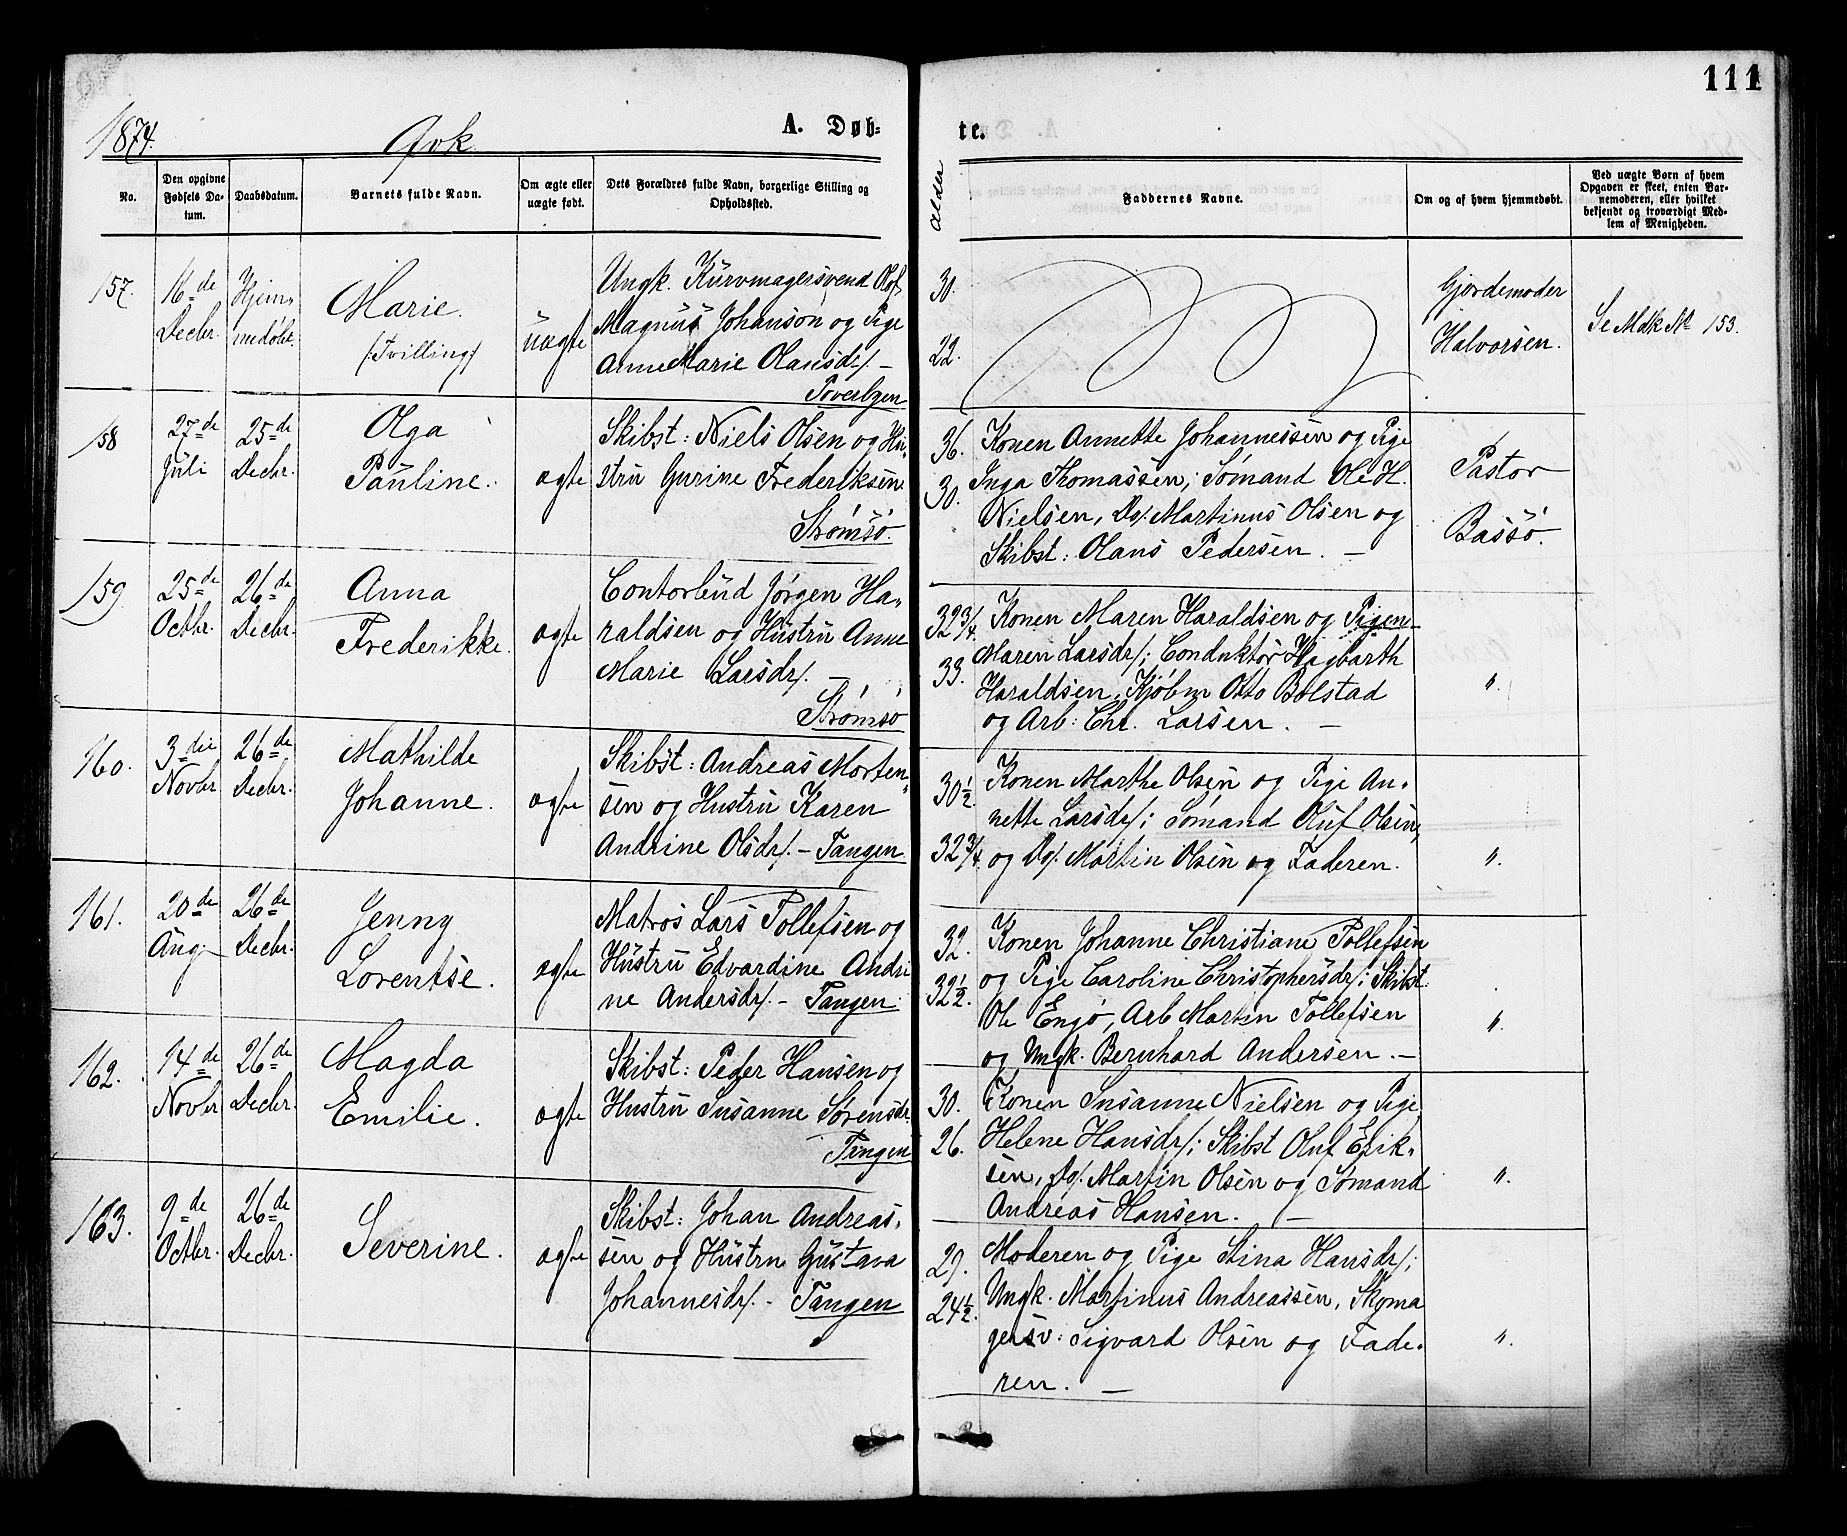 111
1874.
Qvk
A. Døb-
te.
No.
Den opgivne
Fødsels Da-
tum.
Daabsdatum.
Barnets fulde Navn.
Om ægte eller
uægte født.
Dets Forældres fulde Navn, borgerlige Stilling og
Opholdssted.
Alder
Faddernes Navne.
Om og af hvem hjemmedøbt.
Ved uægte Børn af hvem
Opgaven er skeet, enten Bar-
nemoderen, eller hvilket
bekjendt og troværdigt Med-
lem af Menigheden.
157.
16de
Decbr.
Hjem-
medøbt.
Marie.
(Tvilling)
uægte
Ungk. Kurvmagersvend Olof
Magnus Johanson og Pige
Anne Marie Olausdr/. –
Toverbyen
30.
22.
Gjordemoder
Halvorsen.
Se Mdk No 153.
158
27de
Juli
25de
Decbr.
Olga
Pauline.
ægte
Skibst: Niels Olsen og Hu-
stru Gurine Frederiksen.
Strømsø.
36.
30.
Konen Annette Johannessen og Pige
Inga Thomassen; Sømand Ole H.
Nielsen, Do/. Martinus Olsen og
Skibst: Olaus Pedersen. –
Pastor
Bassø.
159
25de
Octbr.
26de
Decbr.
Anna
Frederikke.
ægte
Contorbud Jørgen Ha-
raldsen og Hustru Anne
Marie Larsdr/. –
Strømsø
32 3/4.
33.
Konen Maren Haraldsen og Pigen
Maren Larsdr/; Conduktør Hagbarth
Haraldsen, Kjøbm Otto Bolstad
og Arb: Chr. Larsen. –
"
160.
3die
Novbr
26de
Decbr.
Mathilde
Johanne.
ægte
Skibst: Andreas Morten-
sen og Hustru Karen
Andrine Olsdr/. – Tangen
30 1/2.
32 3/4.
Konen Marthe Olsen og Pige An-
nette Larsdr/; Sømand Oluf Olsen,
og Do/. Martin Olsen og Faderen.
"
161.
20de
Aug
26de
Decbr.
Jenny
Lorentse.
ægte
Matros Lars Tollefsen og
Hustru Edvardine Andri
ne Andersdr/. – Tangen.
32.
32 1/2.
Konen Johanne Christiane Tollefsen
og Pige Caroline Christophersdr/; Skibst
Ole Engø, Arb Martin Tollefsen
og Ungk. Bernhard Andersen. –
"
162.
14de
Novbr
26de
Decbr.
Magda
Emilie.
ægte
Skibst: Peder Hansen og
Hustru Susanne Sørensdr.
Tangen
30.
26.
Konen Susanne Nielsen og Pige
Helene Hansdr/; Skibst Oluf Erik-
sen, Do/. Martin Olsen og Sømand
Andreas Hansen. –
"
163.
9de
Octbr.
26de
Decbr.
Severine.
ægte
Skibst: Johan Andreas-
sen og Hustru Gustava
Johannesdr/. – Tangen
29.
24 1/2.
Moderen og Pige Stina Hansdr/;
Ungk. Martinus Andreassen, Skoma
gersv: Sigvard Olsen og Fade-
ren. –
"